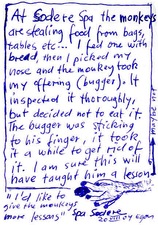 At Sodere Spa the monkeys
are stealing food from bags,
tables etc... I fed one with
bread, then I picked my
nose and the monkey took
my offering (bugger). It
inspected it thoroughly,
but decided not to eat it.
The bugger was sticking
to his finger, it took
it a while to get rid of
it. I am sure this will
have taught him a lesson
"I'd like to
give the monkeys
more lessons" Spa Sodere